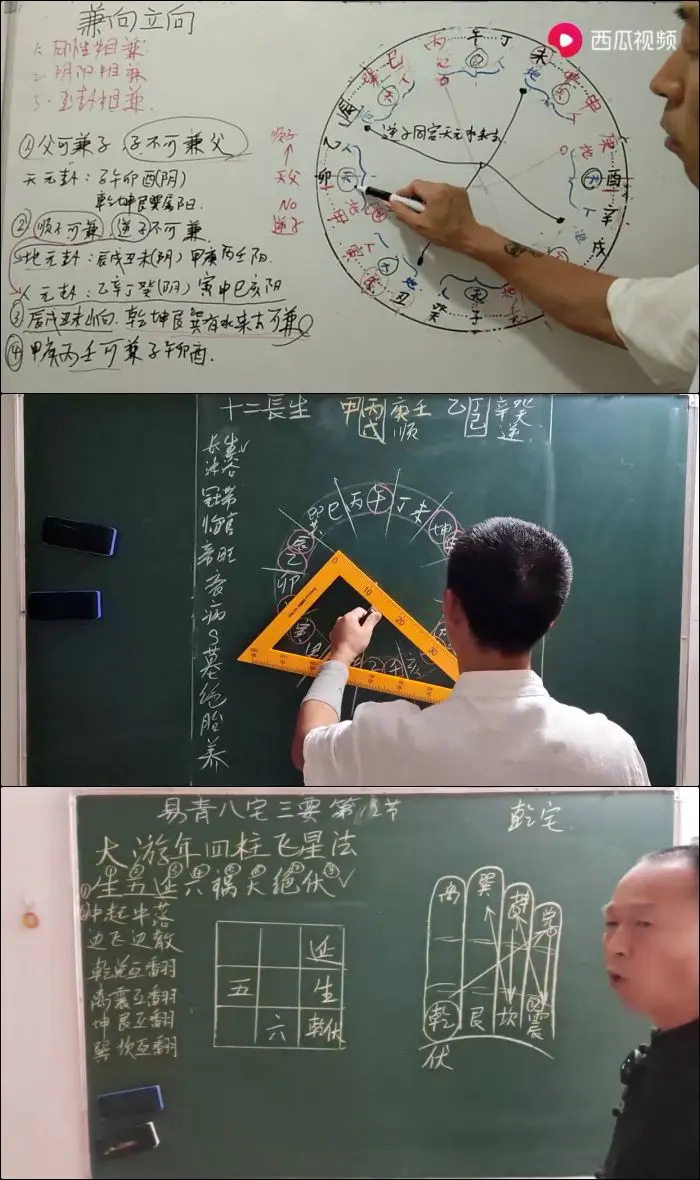 兼向立向
西瓜视频
1. 同性相兼
2. 阴阳相兼
3. 卦相兼
① 父可兼子, 子不可兼父
天元卦: 子午卯酉(阴)
乾坤艮巽属阳.
② 顺子可兼, 逆子不可兼
地元卦: 辰戌丑未(阴) 甲庚丙壬阳.
人元卦: 乙辛丁癸(阴) 寅申巳亥阳
③ 辰戌丑未山向, 乾坤艮巽有水来去可兼
④ 甲庚丙壬可兼子午卯酉.
顺子
天父
NO
逆子
逆子同宫天元水来去
巳
丙
午
丁
未
申
酉
辛
戌
子
癸
丑
卯
乙
辰
十二長生
甲丙戊庚壬
顺
乙丁己辛癸
逆
长生
沐浴
冠带
临官
帝旺
衰
病
死
墓
绝
胎
养
巽巳丙午丁未坤
辰
乙
卯
易青八宅三要第12节
乾宅
大游年四柱飞星法
生五延六祸天绝伏
冲起冲落
边飞边散
乾兑互翻
离震互翻
坤艮互翻
巽坎互翻
延
五
生
六
乾伏
离
巽
坤
兑
乾
艮
坎
震
伏